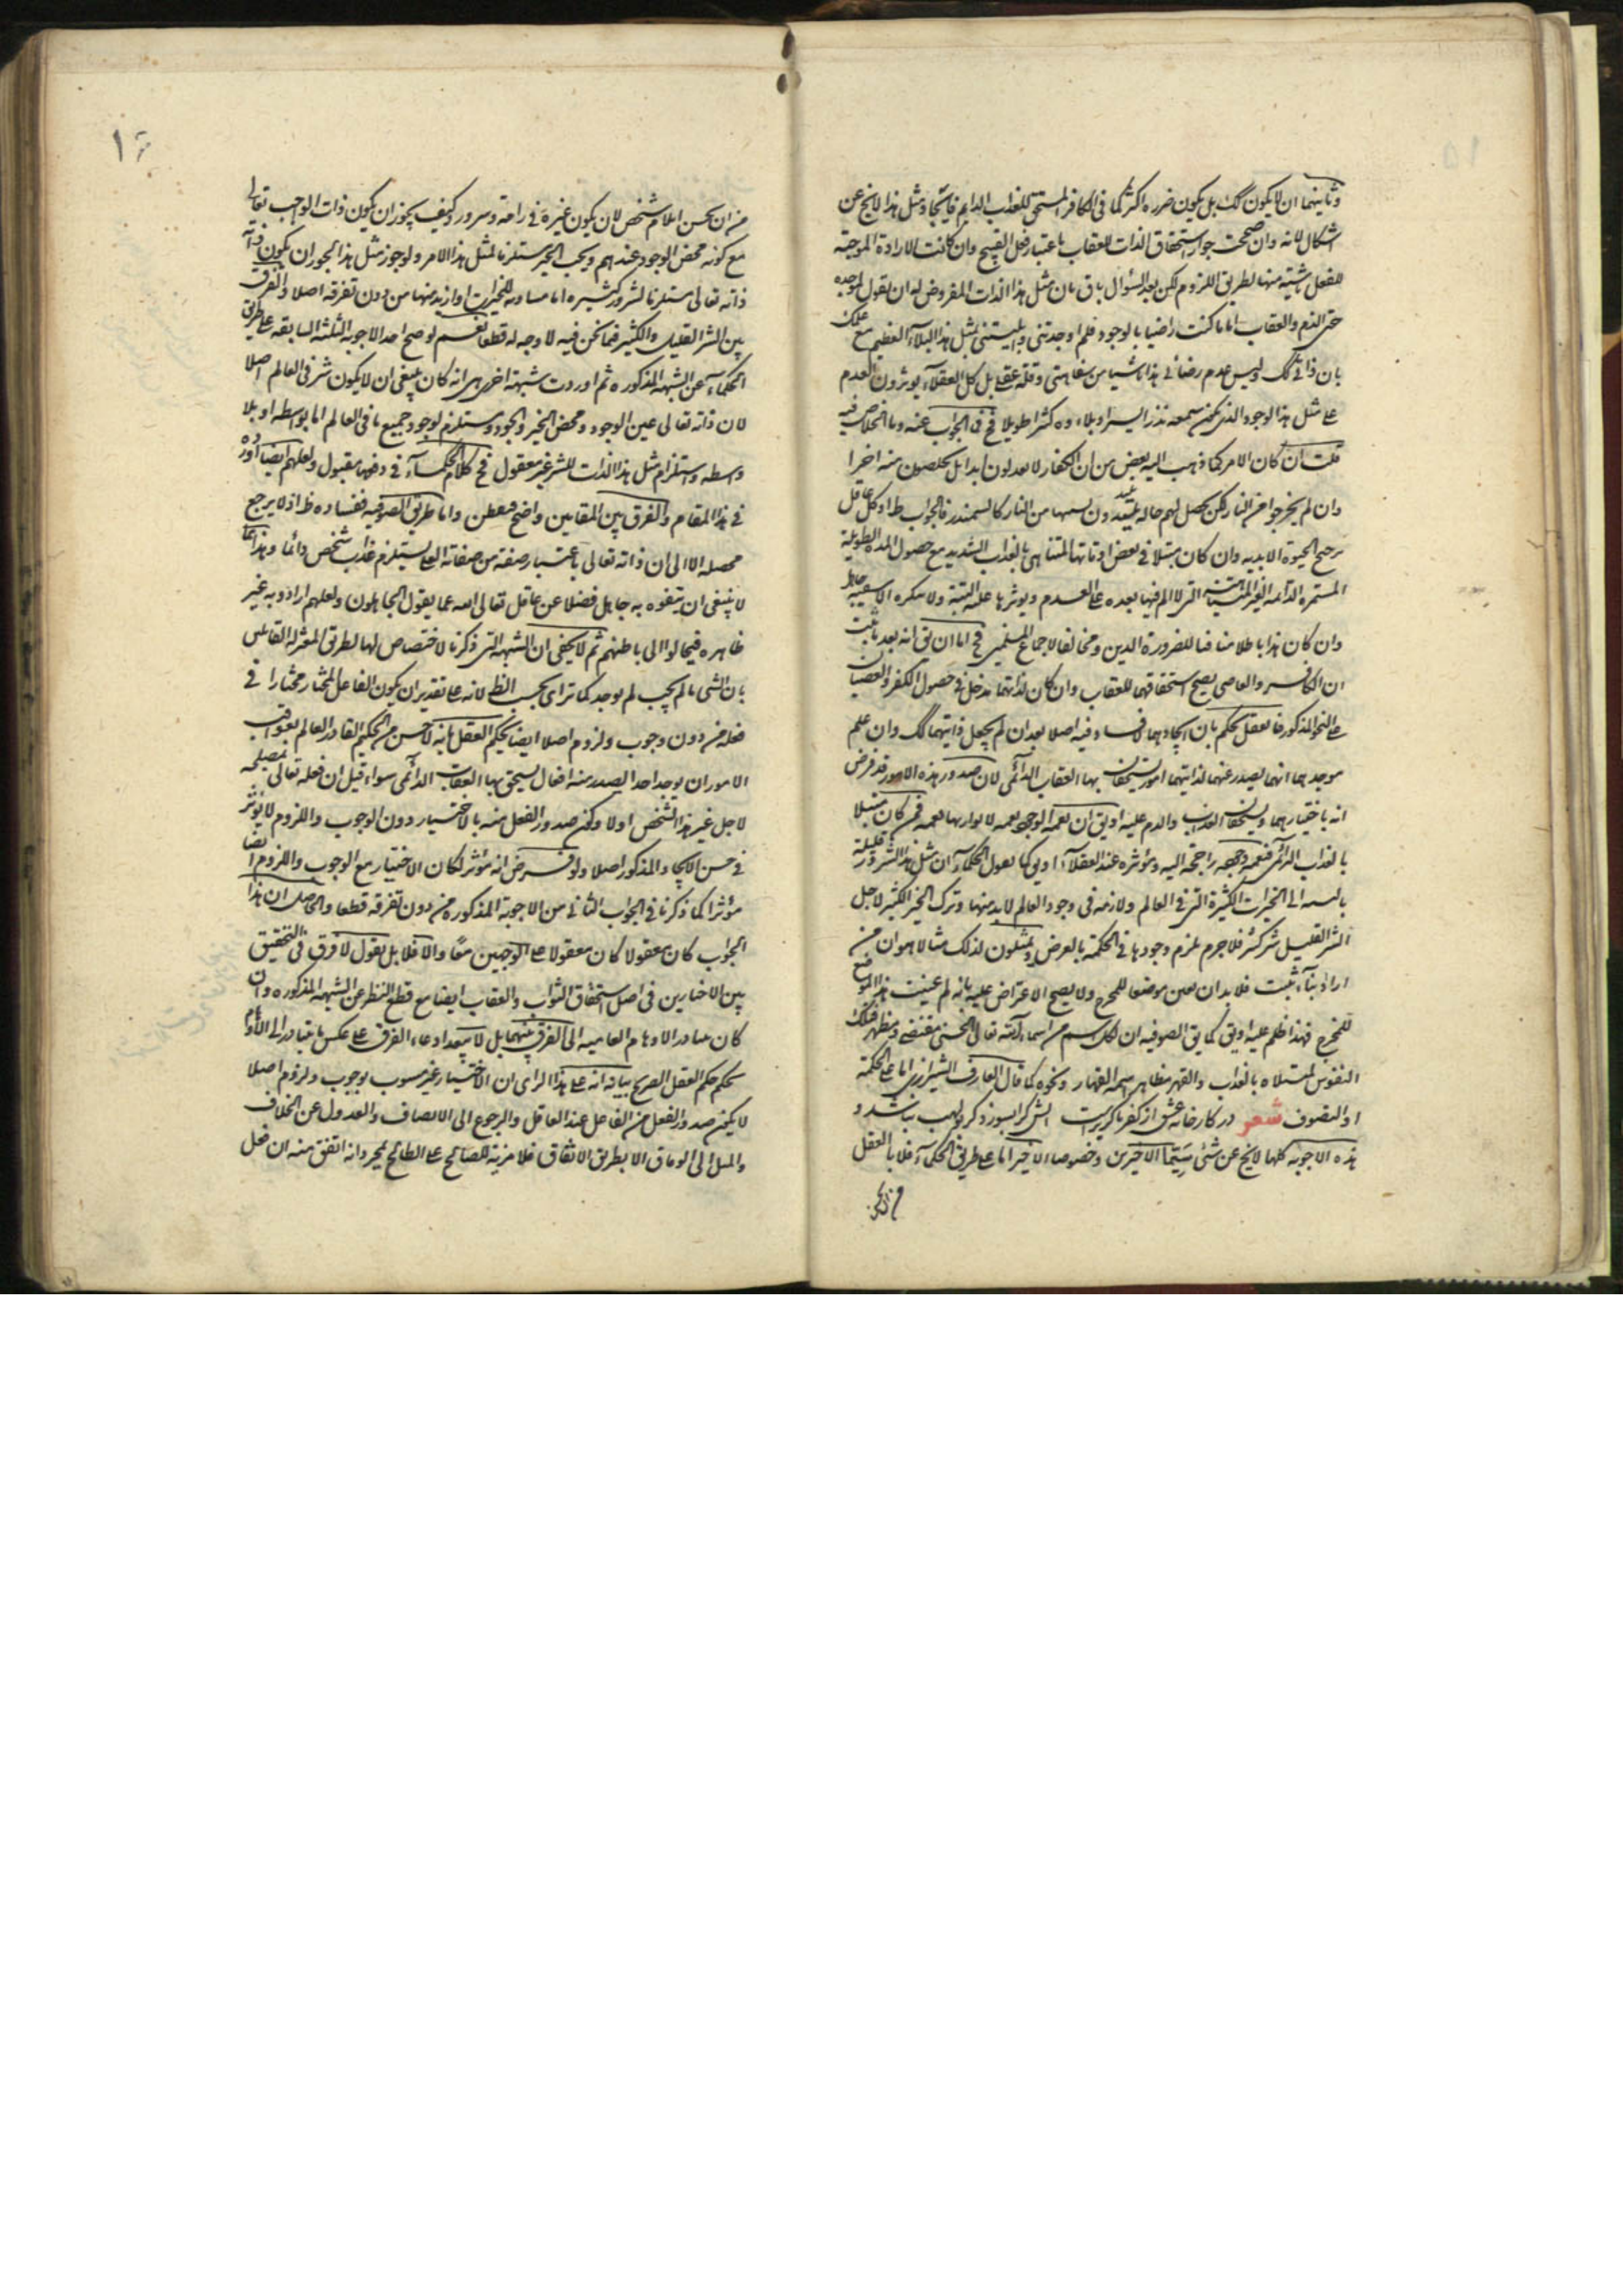 وثانيهما ان لا يكون كك بل يكون ضرره اكثر كما فى الكافر المستحق للعذاب الدايم فايجاد مثل هذا لا يخ عن
اشكال لانه وان صحت جواز استحقاق الذات للعقاب باعتبار فعل القبيح وان كانت الارادة الموجبة
للفعل منها بطريق اللزوم لكن بعد السؤال باق بان مثل هذا الذات المفروض له ان يقول لموجده
حق الذم والعقاب انا ما كنت راضيا بالوجود فلم اوجدتنى وابليتنى بمثل هذا البلاء العظيم مع علمك
بان ذاتى كك وليس عدم رضائى بهذا ناشيا من سفاهتى وقلة عقلى بل كل العقلاء يوثرون العدم
على مثل هذا الوجود الذى يكون نذر اليسر وبلاءه كثيرا طويلا فح فى الجواب عنه وما الخلاص فيه
قلت ان كان الامر كما ذهب اليه بعض من ان الكفار لا ابدا بل يخلصون منه اخيرا
وان لم يخرجوا من النار لكن يحصل لهم حالة من النار كالسمندر فالجواب ظ اذ كل عاقل
يرجح الحيوة الابديه وان كان مبتلا فى بعض اوقاتها المتناهى بالعذاب الشديد مع حصول المدة الطويلة
المستمرة الدائمه الغير المتناهية التى لا الم فيها بعده على العدم ويوثرها عليه البتة ولا ينكره الا سفيه جاهل
وان كان هذا باطلا منافيا للضرورة الدين ومخالفا لاجماع المسلمين فح اما ان يق انه بعد ما ثبت
ان الكافر والعاصى يصح استحقاقهما للعقاب وان كان لذاتهما مدخل فى حصول الكفر والعصيان
على النحو المذكور فالعقل يحكم بان ايجادهما لا فساد فيه اصلا بعد ان لم يجعل ذاتيهما كك وان علم
موجدهما انهما يصدر عنهما لذاتيهما امور يستحقان بها العقاب الدائمى لان صدور هذه الامور قد فرض
انه باختيارهما ويستحقان العذاب والذم عليه او يق ان نعمة الوجود نعمه لا يوازيها نعمه فمن كان مبتلا
بالعذاب الدائمى فنعمة وجوده راجحة اليه ومؤثره عند العقلاء او يق كما يقول الحكماء ان مثل هذا الشرور قليلة
بالنسبه الى الخيرات الكثيرة التى فى العالم ولازمه فى وجود العالم لابد منها وترك الخير الكثير لاجل
الشر القليل شر كثير فلا جرم يلزم وجودها فى الحكمة بالعرض ويمثلون لذلك مثالا هو ان من
اراد بناء بيت فلا بد ان يعين موضعا للمخرج ولا يصح الاعتراض عليه بانه لم عينت هذا الموضع
للمخرج فهذا ظلم عليه او يق كما يق الصوفيه ان لكل اسم من اسماء الله تعالى الحسنى مقتضى ومظهر فتلك
النفوس المبتلاه بالعذاب والقهر مظاهر اسمه القهار ونحوه كما قال العارف الشيرازى اما على الحكمة
او التصوف شعر در كارخانه عشق از كفر ناگزيرست اتش كرا بسوزد گر بولهب نباشد و
هذه الاجوبه كلها لا يخ عن شئ سيما الاخيرين وخصوصا الاخير اما على طريق الحكماء فلاباء العقل
من ان يحسن ايلام شخص لان يكون غيره فى راحة وسرور وكيف يجوز ان يكون ذات الواجب تعالى
مع كونه محض الوجود عندهم ويحب الخير مستلزما لمثل هذا الامر ولو جوز مثل هذا لجوز ان يكون ذاته
ذاته تعالى مستلزما لشرور كثيره اما مساويه للخيرات او ازيد منها من دون تفرقة اصلا والفرق
بين الشر القليل والكثير فيما نحن فيه لا وجه له قطعا نعم لو صح احد الاجوبه الثلثة السابقه على طريق
الحكماء عن الشبهه المذكوره ثم اوردت شبهة اخرى هى انه كان ينبغى ان لا يكون شر فى العالم اصلا
لان ذاته تعالى عين الوجود ومحض الخير والجود ومستلزم لوجود جميع ما فى العالم اما بواسطه او بلا
واسطه واستلزام مثل هذا الذات للشر غير معقول فح كلام الحكماء فى دفعها مقبول ولعلهم ايضا اوردوه
فى هذا المقام والفرق بين المقامين واضح فتفطن واما طريق الصوفيه ففساده ظ اذ لا يرجع
محصله الا الى ان ذاته تعالى باعتبار صفة من صفاته العليا يستلزم عذاب شخص دائما وهذا مما
لا ينبغى ان يتفوه به جاهل فضلا عن عاقل تعالى الله عما يقول الجاهلون ولعلهم ارادو به غير
ظاهره فيحالوا الى باطنهم ثم لا يخفى ان الشبهه التى ذكرنا لا اختصاص لها بطريق المعتزله القائلين
بان الشى ما لم يجب لم يوجد كما ترأى بحسب النظر لانه على تقدير ان يكون الفاعل المختار مختارا فى
فعله من دون وجوب ولزوم اصلا ايضا يحكم العقل بانه لا يحسن من الحكيم القادر العالم بعواقب
الامور ان يوجد احدا ليصدر منه افعال يستحق بها العقاب الدائمى سواء قيل ان فعله تعالى لمصلحه
لاجل غير هذا الشخص او لا وكون صدور الفعل منه بالاختيار دون الوجوب واللزوم لا يوثر
فى حسن الايجاد المذكور اصلا ولو فرض انه مؤثر لكان الاختيار مع الوجوب واللزوم ايضا
مؤثرا كما ذكرنا فى الجواب الثانى من الاجوبة المذكوره من دون تفرقه قطعا والحاصل ان هذا
الجواب كان معقولا كان معقولا على الوجهين معًا والا فلا بل نقول لا فرق فى التحقيق
بين الاختيارين فى اصل استحقاق الثواب والعقاب ايضا مع قطع النظر عن الشبهه المذكوره وان
كان يتبادر الاوهام العاميه الى الفرق بينهما بل لا يبعد ادعاء الفرق على عكس ما يتبادر الى الاوهام
بحكم حكم العقل الصريح بيانه انه على هذا الراى ان الاختيار غير مسبوب بوجوب ولزوم اصلا
لا يكون صدور الفعل من الفاعل عند العاقل والرجوع الى الانصاف والعدول عن الخلاف
والميل الى الوفاق الا بطريق الاتفاق فلا مزية للصالح على الطالح بمجرد انه اتفق منه ان فعل